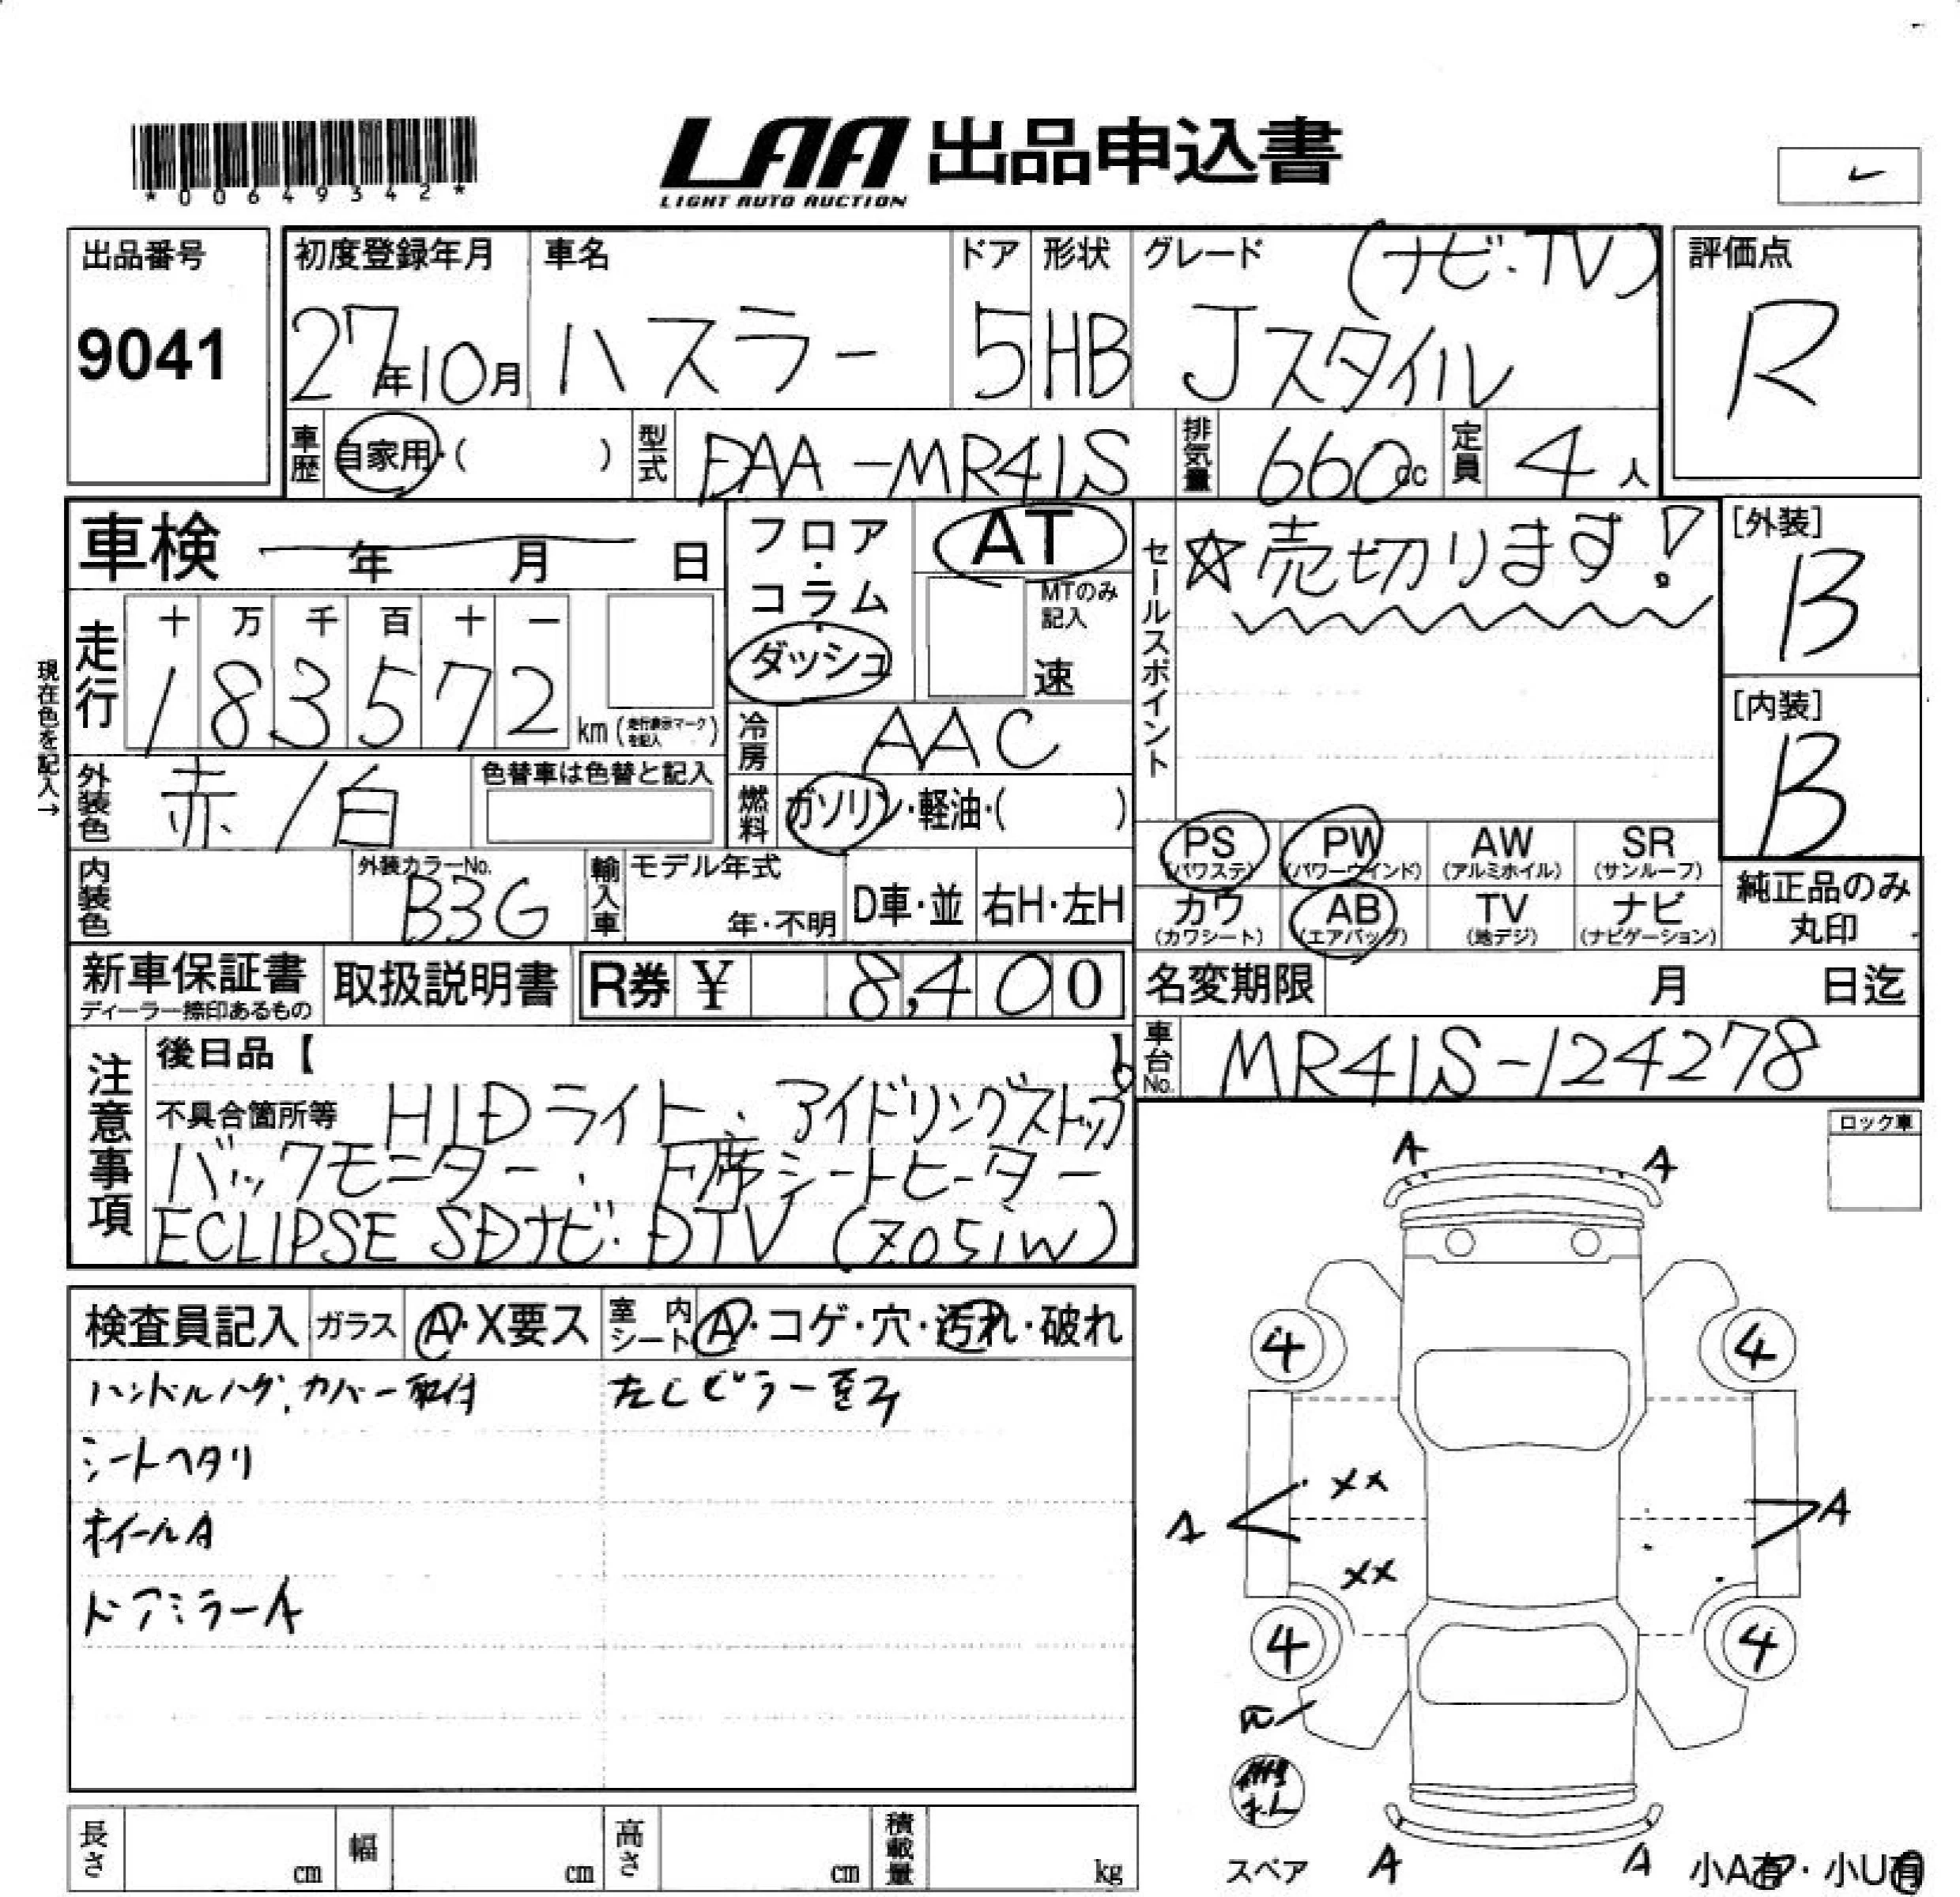 *00649342*
LAA 出品申込書
LIGHT AUTO AUCTION
出品番号
9041
初度登録年月
27年10月
車名
ハスラー
ドア
5
形状
HB
グレード
(ナビ・TV)
Jスタイル
評価点
R
車歴
自家用・( )
型式
DAA-MR41S
排気量
660cc
定員
4人
車検 年 月 日
フロア・コラム・ダッシュ
AT
MTのみ記入
速
セールスポイント
☆売切ります!
[外装]
B
[内装]
B
現在色を記入→
走行
十 万 千 百 十 一
1 8 3 5 7 2
km(走行表示マークを記入)
冷房
AAC
外装色
赤/白
色替車は色替と記入
燃料
ガソリン・軽油・( )
PS
(パワステ)
PW
(パワーウインド)
AW
(アルミホイル)
SR
(サンルーフ)
カワ
(カワシート)
AB
(エアバッグ)
TV
(地デジ)
ナビ
(ナビゲーション)
純正品のみ
丸印
内装色
外装カラーNo.
B3G
輸入車
モデル年式
年・不明
D車・並
右H・左H
新車保証書
ディーラー捺印あるもの
取扱説明書
R券 ¥ 8,400
名変期限 月 日迄
車台No.
MR41S-124278
注意事項
後日品【 】
不具合箇所等 HIDライト、アイドリングストップ
バックモニター、F席シートヒーター
ECLIPSE SDナビ・DTV (Z05iW)
ロック車
検査員記入
ガラス
A・X要ス
室内シート
A・コゲ・穴・汚れ・破れ
ハンドルハゲ、カバー取付
左Cピラー歪み
シートヘタリ
ホイールA
ドアミラーA
A A
4 4
XX
A A
XX
4 4
スペア
A A
小A有・小U有
長さ cm
幅 cm
高さ cm
積載量 kg